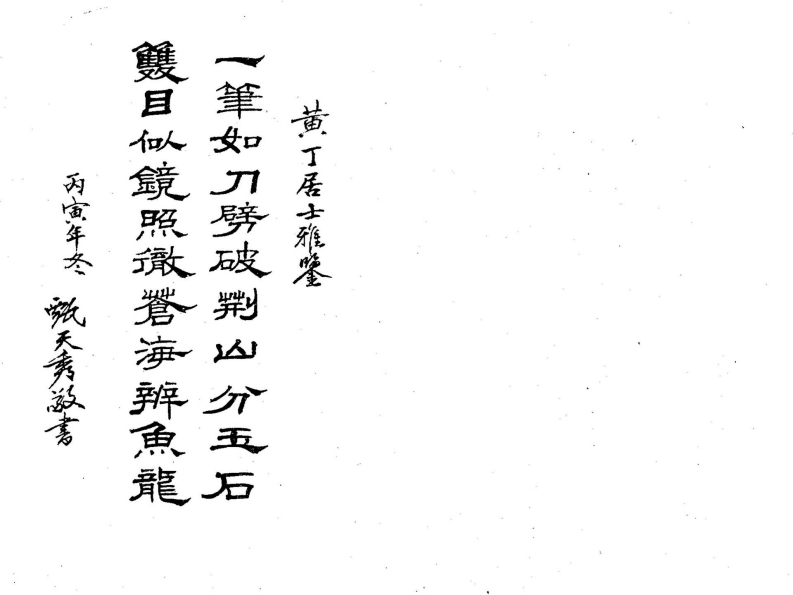 黄丁居士雅鑒
一筆如刀劈破荆山分玉石
雙目似鏡照徹蒼海辨魚龍
丙寅年冬 甄天秀敬書